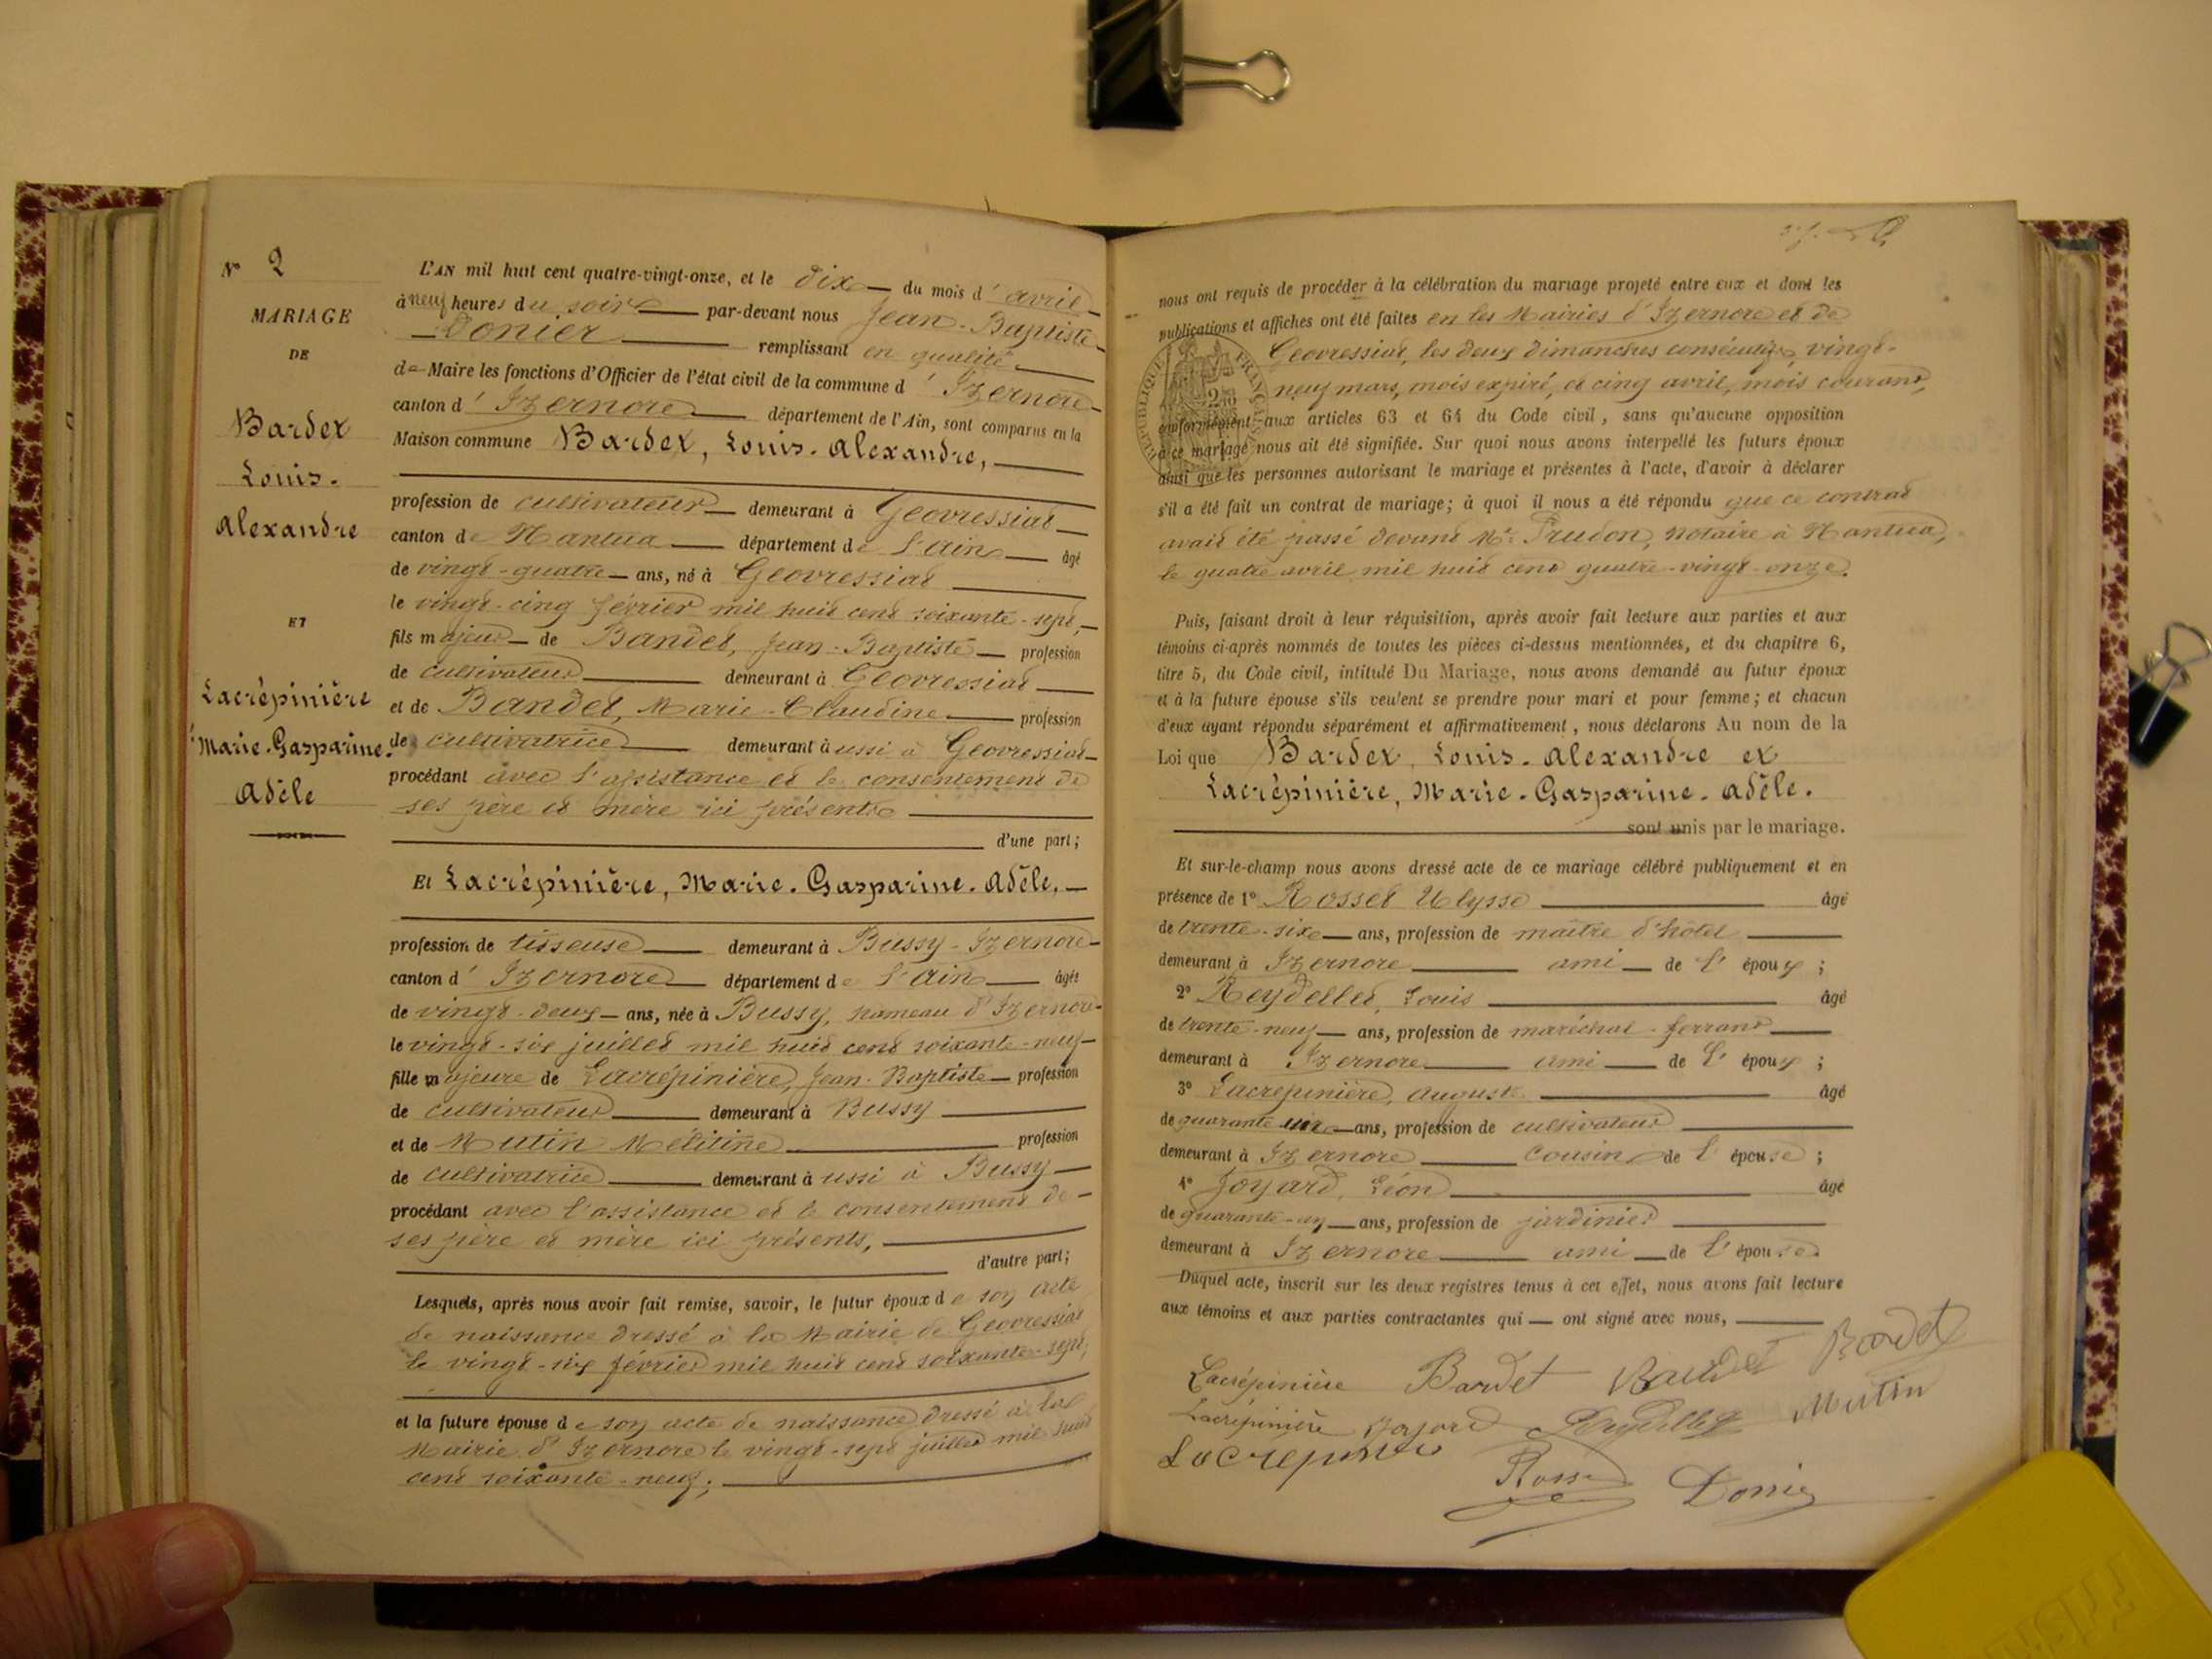 N° 2
MARIAGE
DE
Bardet
Louis-
Alexandre
ET
Lacrépinière
Marie-Gasparine-
Adèle
L'AN mil huit cent quatre-vingt-onze, et le dix du mois d'avril
à neuf heures du soir par-devant nous Jean-Baptiste
Donier remplissant en qualité
de Maire les fonctions d'Officier de l'état civil de la commune d'Izernore
canton d'Izernore département de l'Ain, sont comparus en la
Maison commune Bardet, Louis-Alexandre,
profession de cultivateur demeurant à Geovressiat
canton de Nantua département de l'Ain âgé
de vingt-quatre ans, né à Geovressiat
le vingt-cinq février mil huit cent soixante-sept,
fils majeur de Bardet, Jean-Baptiste profession
de cultivateur demeurant à Geovressiat
et de Bandet, Marie-Claudine profession
de cultivatrice demeurant aussi à Geovressiat
procédant avec l'assistance et le consentement de
ses père et mère ici présents
d'une part;
Et Lacrépinière, Marie-Gasparine-Adèle,
profession de tisseuse demeurant à Bussy-Izernore
canton d'Izernore département de l'Ain âgée
de vingt-deux ans, née à Bussy, hameau d'Izernore
le vingt-six juillet mil huit cent soixante-neuf
fille majeure de Lacrépinière, Jean-Baptiste profession
de cultivateur demeurant à Bussy
et de Mutin Mélitine profession
de cultivatrice demeurant aussi à Bussy
procédant avec l'assistance et le consentement de
ses père et mère ici présents,
d'autre part;
Lesquels, après nous avoir fait remise, savoir, le futur époux de son acte
de naissance dressé à la Mairie de Geovressiat
le vingt-six février mil huit cent soixante-sept,
et la future épouse de son acte de naissance dressé à la
Mairie d'Izernore le vingt-sept juillet mil huit
cent soixante-neuf;
nous ont requis de procéder à la célébration du mariage projeté entre eux et dont les
publications et affiches ont été faites en les Mairies d'Izernore et de
Geovressiat, les deux dimanches consécutifs, vingt-
neuf mars, mois expiré, et cinq avril, mois courant,
conformément aux articles 63 et 64 du Code civil, sans qu'aucune opposition
à ce mariage nous ait été signifiée. Sur quoi nous avons interpellé les futurs époux
ainsi que les personnes autorisant le mariage et présentes à l'acte, d'avoir à déclarer
s'il a été fait un contrat de mariage; à quoi il nous a été répondu que ce contrat
avait été passé devant Me Prudon, notaire à Nantua,
le quatre avril mil huit cent quatre-vingt-onze.
Puis, faisant droit à leur réquisition, après avoir fait lecture aux parties et aux
témoins ci-après nommés de toutes les pièces ci-dessus mentionnées, et du chapitre 6,
titre 5, du Code civil, intitulé Du Mariage, nous avons demandé au futur époux
et à la future épouse s'ils veulent se prendre pour mari et pour femme; et chacun
d'eux ayant répondu séparément et affirmativement, nous déclarons Au nom de la
Loi que Bardet, Louis-Alexandre et
Lacrépinière, Marie-Gasparine-Adèle.
sont unis par le mariage.
Et sur-le-champ nous avons dressé acte de ce mariage célébré publiquement et en
présence de 1° Rosset Ulysse âgé
de trente-six ans, profession de maître d'hôtel
demeurant à Izernore ami de l'époux;
2° Reydellet, Louis âgé
de trente-neuf ans, profession de maréchal-ferrant
demeurant à Izernore ami de l'époux;
3° Lacrépinière, Auguste âgé
de quarante ans, profession de cultivateur
demeurant à Izernore cousin de l'épouse;
4° Joyard, Léon âgé
de quarante-un ans, profession de jardinier
demeurant à Izernore ami de l'épouse.
Duquel acte, inscrit sur les deux registres tenus à cet effet, nous avons fait lecture
aux témoins et aux parties contractantes qui ont signé avec nous,
Lacrépinière Bardet Bardet
Lacrépinière Reydellet Mutin
Donier